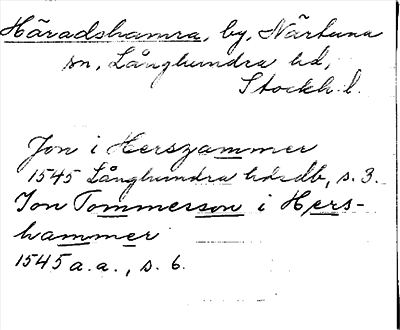 Häradshamra, by, Närtuna
sn, Långhundra hd,
Stockh. l.
Jon i Herszammer
1545 Långhundra hds db, s. 3.
Jon Tommerson i Hers-
hammer
1545 a. a., s. 6.